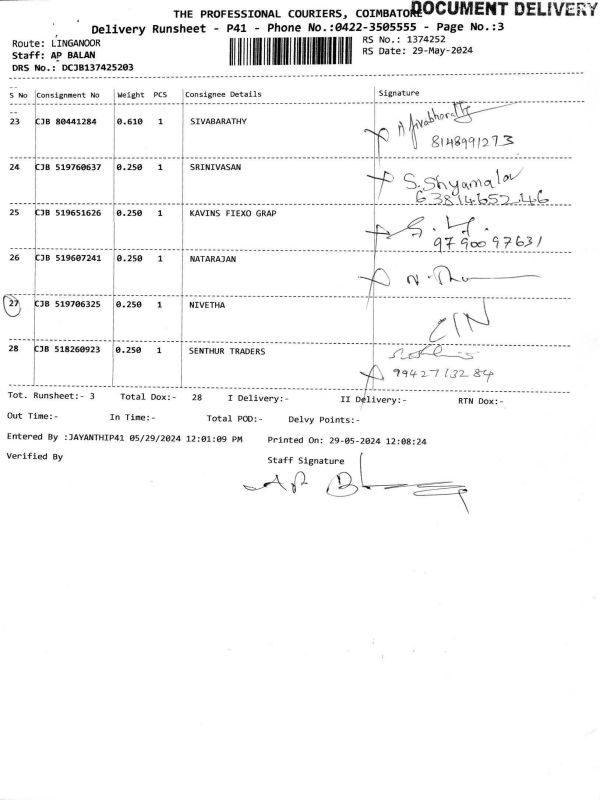 THE PROFESSIONAL COURIERS, COIMBATORE
DOCUMENT DELIVERY
Delivery Runsheet - P41 - Phone No.:0422-3505555 - Page No.:3
Route: LINGANOOR
RS No.: 1374252
Staff: AP BALAN
RS Date: 29-May-2024
DRS No.: DCJB137425203
S No Consignment No Weight PCS Consignee Details Signature
23 CJB 80441284 0.610 1 SIVABARATHY A Sivabharathy
8148991273
24 CJB 519760637 0.250 1 SRINIVASAN S. Shyamala
6381465246
25 CJB 519651626 0.250 1 KAVINS FIEXO GRAP
9790097631
26 CJB 519607241 0.250 1 NATARAJAN
27 CJB 519706325 0.250 1 NIVETHA CIN
28 CJB 518260923 0.250 1 SENTHUR TRADERS
9942713284
Tot. Runsheet:- 3 Total Dox:- 28 I Delivery:- II Delivery:- RTN Dox:-
Out Time:- In Time:- Total POD:- Delvy Points:-
Entered By :JAYANTHIP41 05/29/2024 12:01:09 PM Printed On: 29-05-2024 12:08:24
Verified By Staff Signature